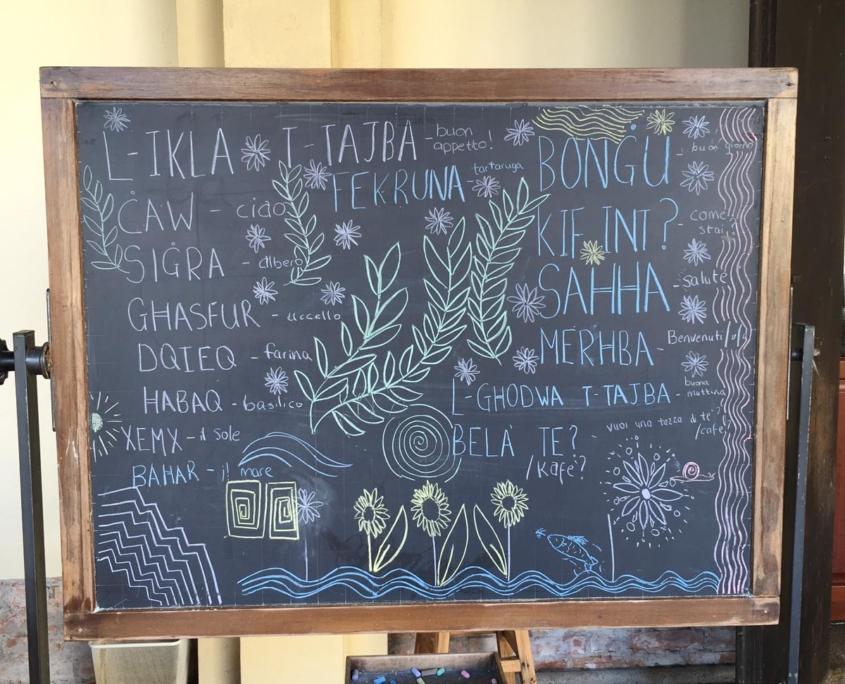 L-IKLA T-TAJBA - buon appetto!
FEKRUNA tartaruga
ĊAW - ciao
SIĠRA - albero
GHASFUR - uccello
DQIEQ - farina
HABAQ - basilico
XEMX - il sole
BAHAR - il mare
BONĠU - buon giorno
KIF INT? - come stai?
SAĦĦA - salute
MERĦBA - Benvenuti/o/a
L-GHODWA T-TAJBA - buona mattina
BELA' TE? /Kafe'? - vuoi una tazza di te'? /cafe'?